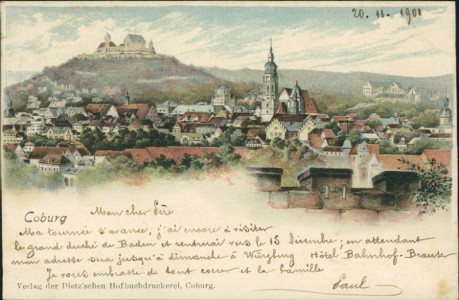 20. 11. 1901
Coburg
Mon cher Père
Ma tournée s'avance, j'ai encore à visiter
le grand duché de Baden et rentrerai vers le 15 Décembre, en attendant
mon adresse sera jusqu'à dimanche à Würzburg Hôtel Bahnhof-
Je vous embrasse de tout coeur et la famille
Paul
Verlag der Dietz'schen Hofbuchdruckerei, Coburg.